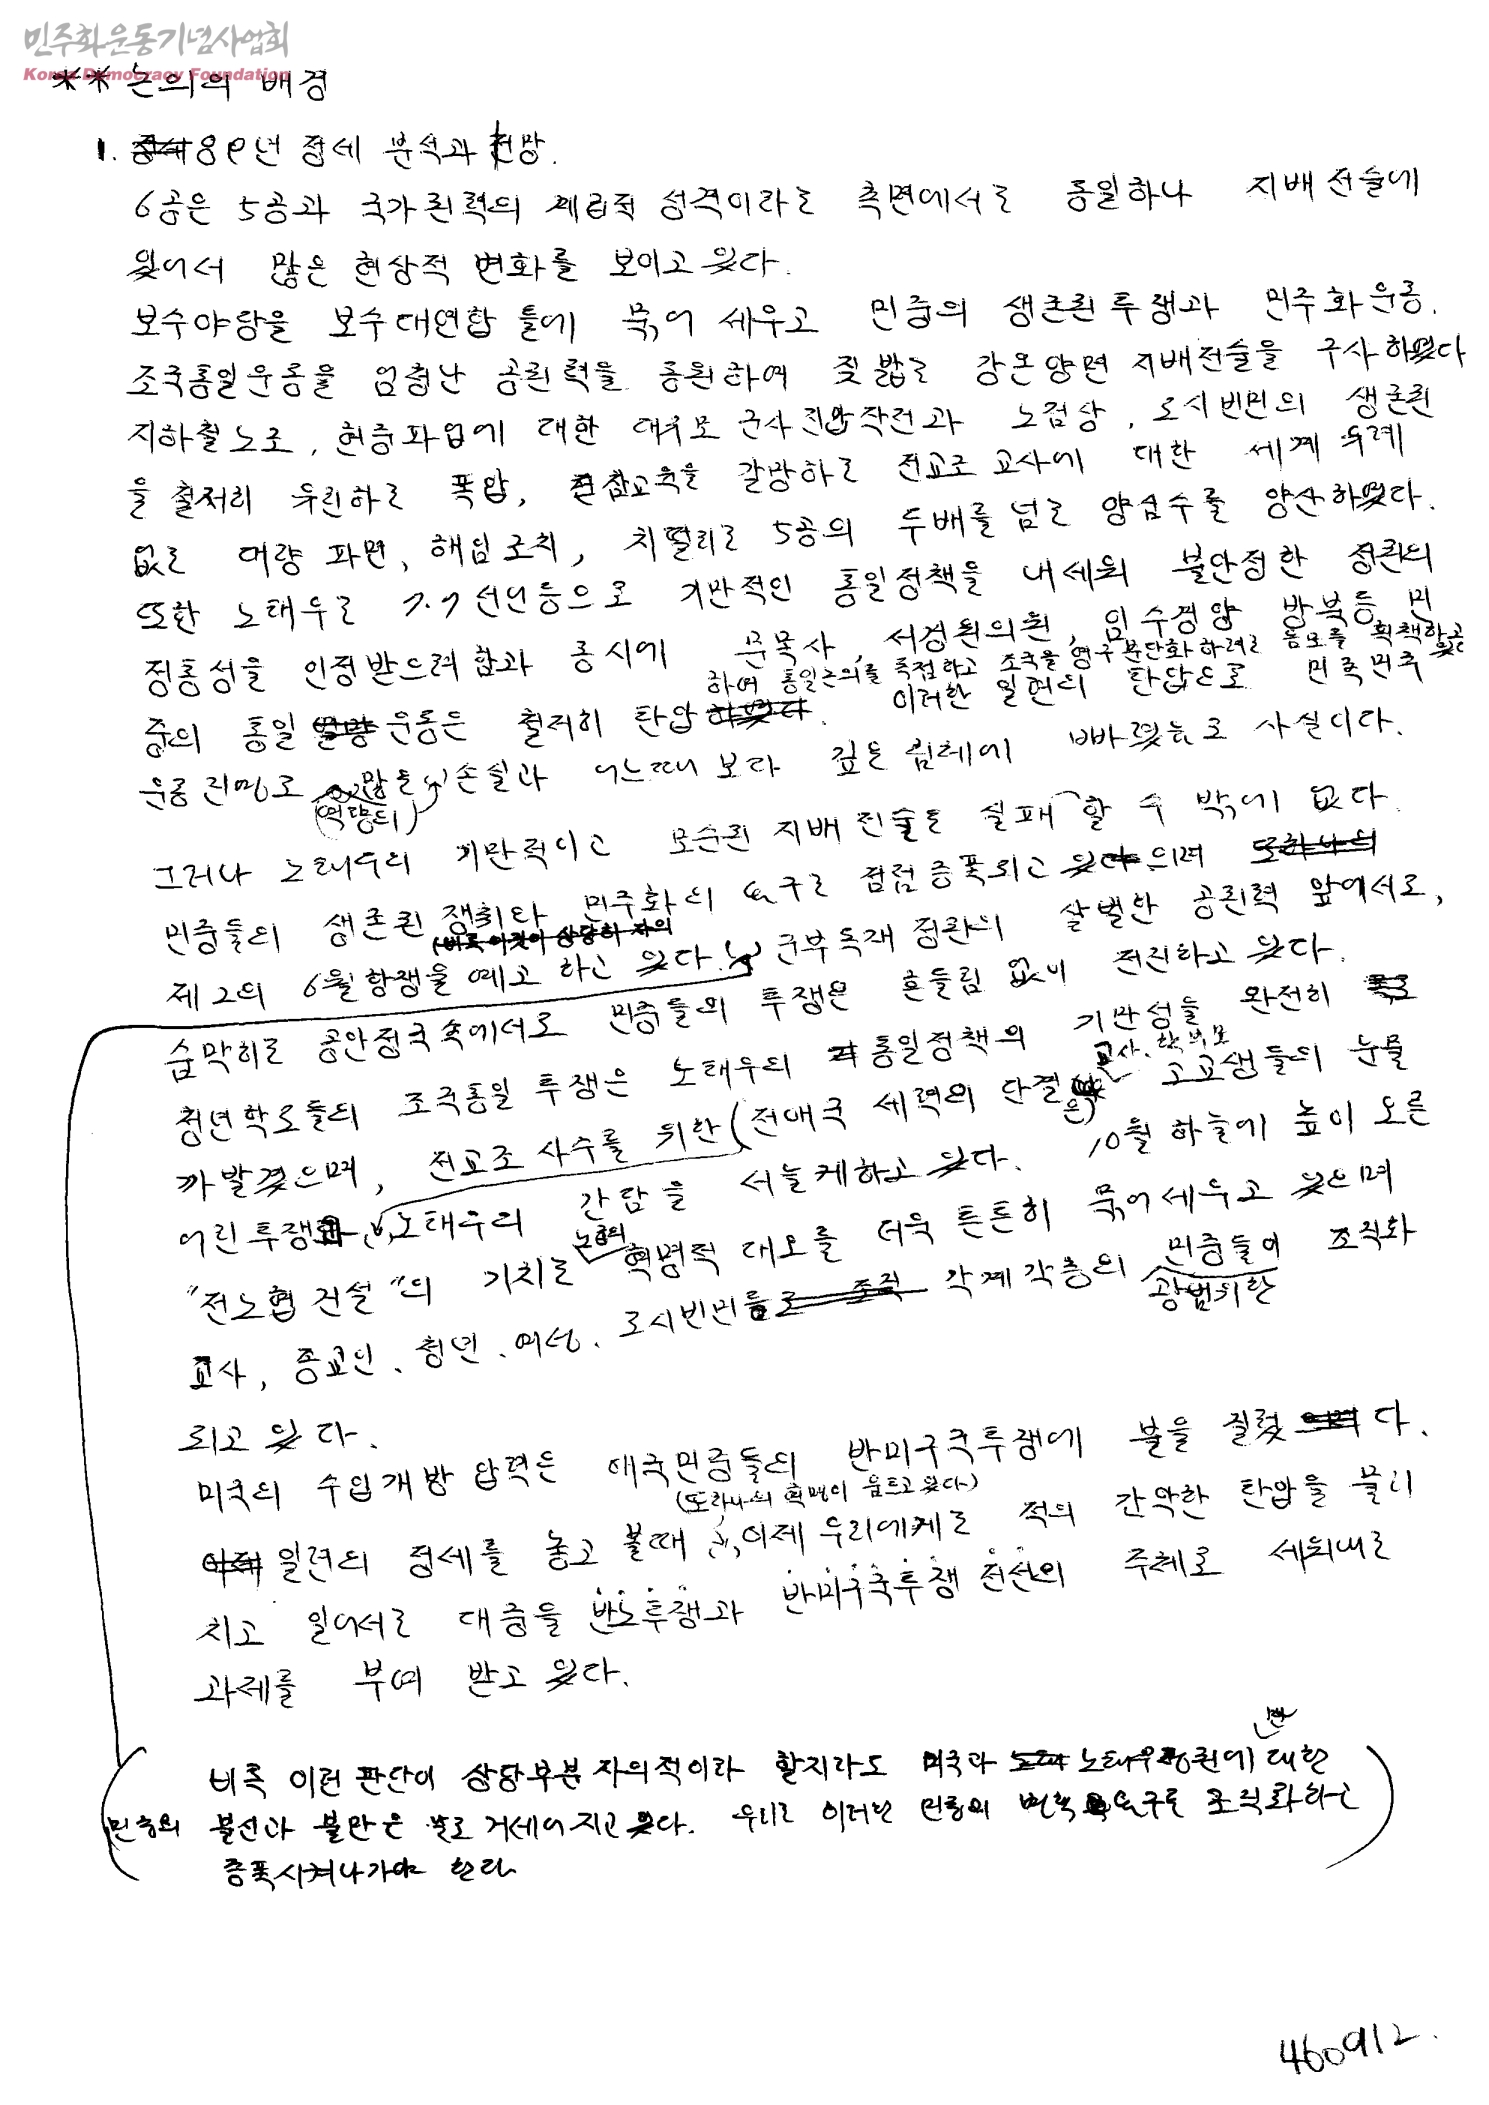 민주화운동기념사업회
Korea Democracy Foundation
** 논의의 배경
1. 89년 정세 분석과 전망.
6공은 5공과 국가권력의 계급적 성격이라는 측면에서는 동일하나 지배전술에
있어서 많은 현상적 변화를 보이고 있다.
보수야당을 보수대연합 틀에 묶어 세우고 민중의 생존권투쟁과 민주화운동.
조국통일운동을 엄청난 공권력을 동원하여 짓밟는 강온양면 지배전술을 구사하였다
지하철노조, 현중파업에 대한 대규모 군사진압작전과 노점상, 도시빈민의 생존권
을 철저히 유린하는 폭압, 참교육을 갈망하는 전교조 교사에 대한 세계 유례
없는 대량 파면, 해임조치, 치떨리는 5공의 두배를 넘는 양심수를 양산하였다.
또한 노태우는 7.7선언등으로 기만적인 통일정책을 내세워 불안정한 정권의
정통성을 인정받으려 함과 동시에 문목사, 서경원의원, 임수경양 방북등 민
하여 통일논의를 독점하고 조국을 영구분단화하려는 음모를 획책하고 있
중의 통일 운동은 철저히 탄압 하였다. 이러한 일련의 탄압으로 민족민주
운동진영도 많은 손실과 어느때 보다 깊은 침체에 빠졌는 사실이다.
(역량의)
그러나 노태우의 기만적이고 모순된 지배전술은 실패할 수 밖에 없다.
민중들의 생존권 쟁취와 민주화의 요구는 점점 증폭되고 있으며 또하나의
(비록 이것이 상당히 자의
제2의 6월항쟁을 예고 하고 있다. 군부독재 정권의 살벌한 공권력 앞에서도,
숨막히는 공안정국속에서도 민중들의 투쟁은 흔들림 없이 전진하고 있다.
청년학도들의 조국통일 투쟁은 노태우의 통일정책의 기만성을 완전히
까발겼으며, 전교조 사수를 위한 (전애국 세력의 단결은) 교사, 학부모 고교생들의 눈물
어린투쟁 노태우의 간담을 서늘케하고 있다. 10월 하늘에 높이 오른
"전노협 건설"의 기치는 노동의 혁명적 대오를 더욱 튼튼히 묶어세우고 있으며
교사, 종교인, 청년, 여성, 도시빈민등 각계각층의 민중들이 조직화
광범위한
되고 있다.
미국의 수입개방 압력은 애국민중들의 반미구국투쟁에 불을 질렀다.
(또하나의 혁명이 움트고 있다)
일련의 정세를 놓고 볼때, 이제 우리에게는 적의 간악한 탄압을 물리
치고 일어서는 대중을 반노투쟁과 반미구국투쟁 전선의 주체로 세워내는
과제를 부여 받고 있다.
비록 이런 판단이 상당부분 자의적이라 할지라도 미국과 노태우정권에 대한
민중의 불신과 불만은 날로 거세어지고 있다. 우리는 이러한 민중의 요구를 조직화하고
증폭시켜나가야 한다
460912.